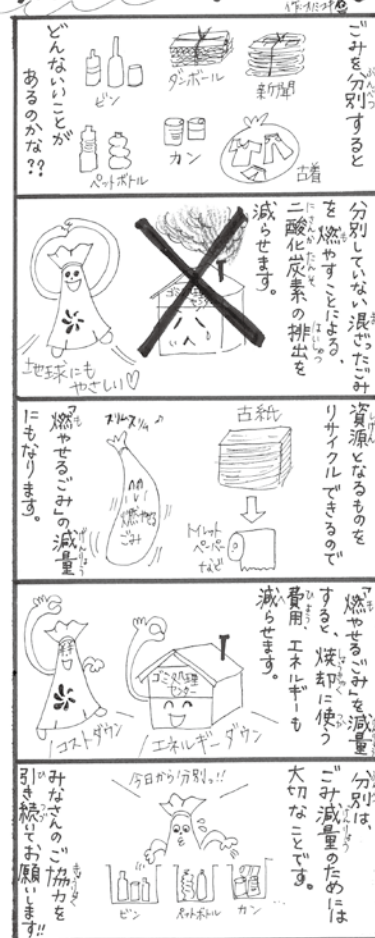 ごみを分別すると
新聞
ダンボール
ビン
古着
カン
ペットボトル
どんないいことが
あるのかな??
分別していない混ざったごみ
を燃やすことによる、
二酸化炭素の排出を
減らせます。
地球にも
やさしい♡
資源となるものを
リサイクルできるので
古紙
トイレット
ペーパー
など
スリムスリム♪
燃やせる
ごみ
「燃やせるごみ」の減量
にもなります。
「燃やせるごみ」を減量
すると、焼却に使う
費用、エネルギーも
減らせます。
ゴミ処理
センター
エネルギーダウン
コストダウン
分別は、
ごみ減量のためには
大切なことです。
今日から分別っ!!
ビン
ペットボトル
カン
みなさんのご協力を
引き続いてお願いします!!